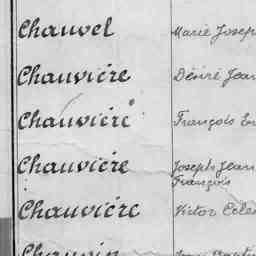 Chauvel Marie Josep
Chauvière Désiré Jean
Chauvière François
Chauvière Joseph Jean
François
Chauvière Victor
Chauvin